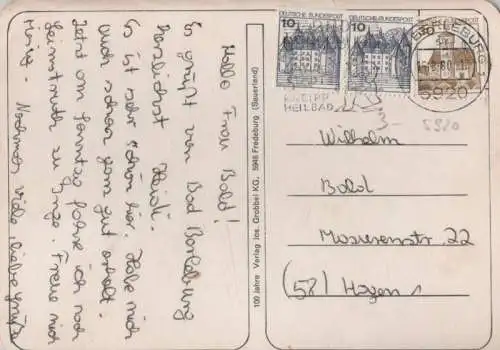 Hallo Frau Bold!
Es grüßt von Bad Berleburg
herzlichst Heidi.
Es ist sehr schön hier. Habe mich
auch schon ganz gut erholt.
Jetzt am Sonntag fahre ich nach
zu Inge. Freue mich
riesig. Nochmals viele liebe Grüße
100 Jahre Verlag Jos. Grobbel KG., 5948 Fredeburg (Sauerland)
10 DEUTSCHE BUNDESPOST
10 DEUTSCHE BUNDESPOST
BERLEBURG 1
5920
KNEIPP
HEILBAD
3-
5920
Wilhelm
Bold
Masurenstr. 22
(58) Hagen 1